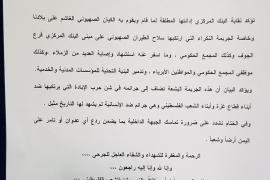 تؤكد نقابة البنك المركزي إدانتها المطلقة لما قام ويقوم به الكيان الصهيوني الغاشم على بلادنا
وخاصة الجريمة النكراء التي ارتكبها سلاح الطيران الصهيوني على مبنى البنك المركزي فرع
الجوف وكذلك المجمع الحكومي. وما اسفر عنه استشهاد وإصابة العديد من الزملاء وكذلك
موظفي المجمع الحكومي والمواطنين الأبرياء. وتدمير البنية التحتية للمؤسسات المدنية والخدمية.
ويؤكد البيان أن هذه الجريمة البشعة تضاف إلى جرائمه في شن حرب الإبادة التي يرتكبها ضد
أبناء قطاع غزة وأبناء الشعب الفلسطيني وهي جرائم ضد الإنسانية لم يشهد لها التاريخ مثيل.
وفي الختام نشدد على ضرورة تماسك الجبهة الداخلية بما يضمن ردع أي عدوان أو تامر على
اليمن أرضاً وشعباً.
الرحمة والمغفرة للشهداء والشفاء العاجل للجرحى ....
وإنا لله وإنا إليه راجعون ...